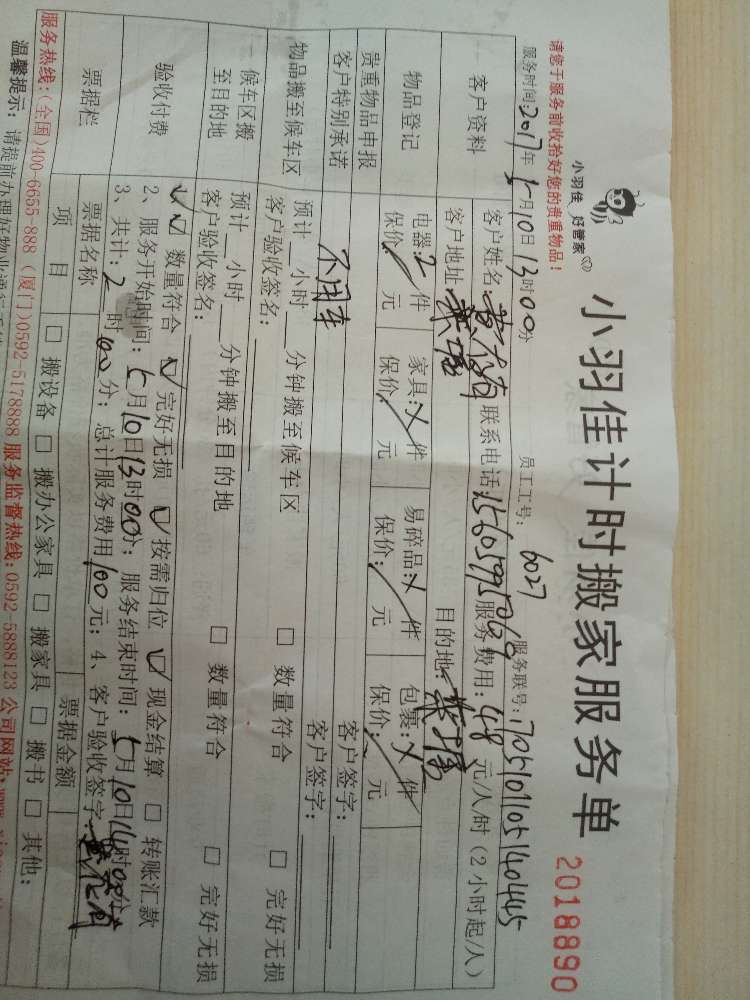 小羽佳 好管家
小羽佳计时搬家服务单
2018890
请您于服务前收拾好您的贵重物品!
服务时间:2017年5月10日13时00分 员工工号:6027 服务联号:
客户资料
客户姓名: 联系电话:15605995069 服务费用:48元/人/时(2小时起/人)
客户地址: 目的地:
物品登记
电器:2件 家具: 件 易碎品: 件 包裹: 件
保价: 元 保价: 元 保价: 元 保价: 元
贵重物品申报 客户签字:
客户特别承诺 不用车 客户签字:
物品搬至候车区
预计 小时 分钟搬至候车区 □ 数量符合 □ 完好无损
客户验收签名:
候车区搬至目的地
预计 小时 分钟搬至目的地 □ 数量符合 □ 完好无损
客户验收签名:
验收付费
数量符合 ☑ 完好无损 ☑ 按需归位 ☑ 现金结算 □ 转账汇款
2、服务开始时间:5月10日13时00分;服务结束时间:5月10日14时00分;
3、共计:2时00分;总计服务费用100元;4、客户验收签字:
票据栏
票据名称 票据金额
项目 □ 搬设备 □ 搬办公家具 □ 搬家具 □ 搬书 □ 其他:
服务热线:(全国)400-6655-888 (厦门)0592-5178888 服务监督热线:0592-5888123 公司网站:
温馨提示: 请提前办理好物业通行